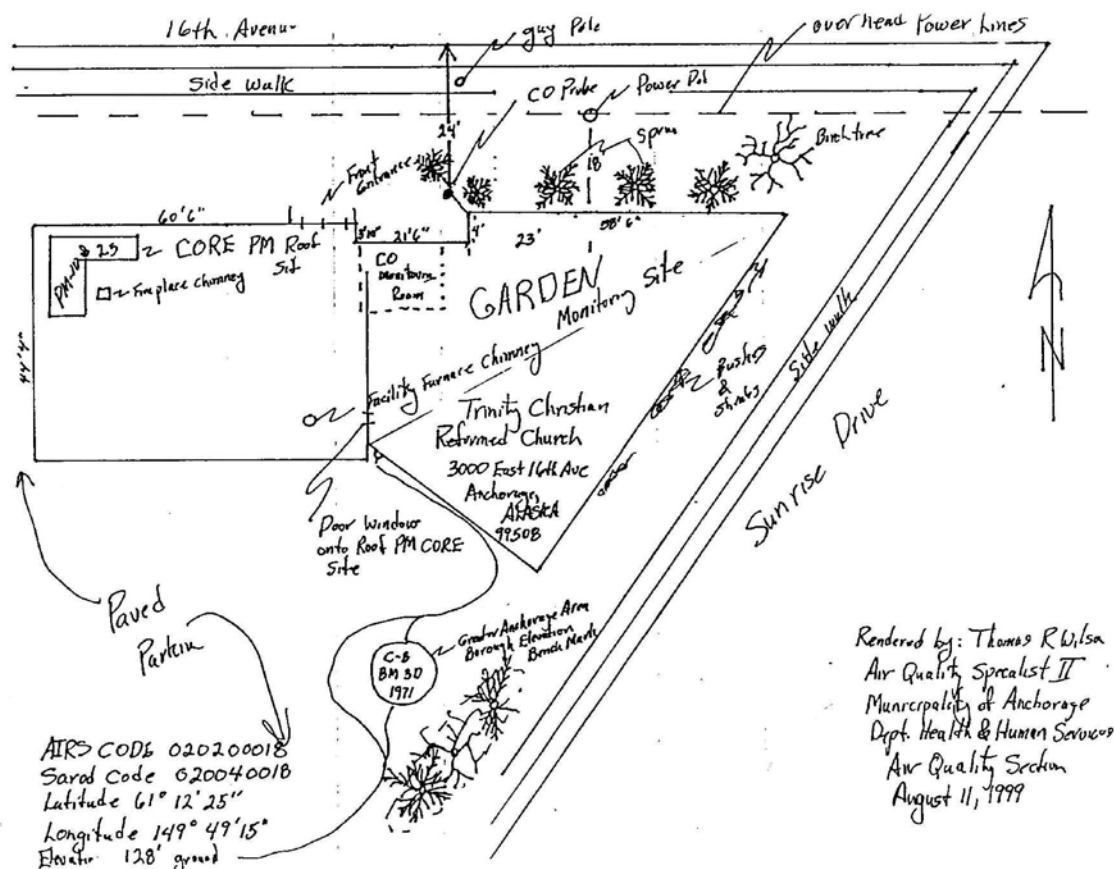 16th Avenu
guy Pole
overhead Power Lines
Side walk
CO Probe
Power Pol
24'
Front
Entrance
18
Birch tree
60'6"
3'10"
21'6"
4'
23'
58'6"
PM-10 & 2.5
CORE PM Roof
Sit
Fireplace chimney
CO
Monitoring
Room
GARDEN
Monitoring Site
N
44'4"
Facility Furnace Chimney
Bushes
&
Shrubs
Side walk
Trinity Christian
Reformed Church
3000 East 16th Ave
Anchorage,
ALASKA
99508
Sunrise Drive
Door Window
onto Roof PM CORE
Site
Paved
Parkin
Greater Anchorage Area
Borough Elevation
Bench Mark
C-B
BM 30
1971
AIRS CODE 020200018
Sarod Code 020040018
Latitude 61° 12' 25"
Longitude 149° 49' 15"
Elevatio 128' ground
Rendered by: Thomas R Wilso
Air Quality Specalist II
Municipality of Anchorage
Dept. Health & Human Services
Air Quality Section
August 11, 1999